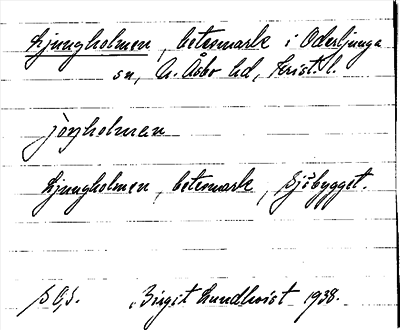 Ljungholmen, betesmark i Oderljunga
sn, N. Åsbo hd, Krist. l.
Ljungholmen, betesmark, Sjöbygget.
S O S. Birgit Lundkvist 1938.